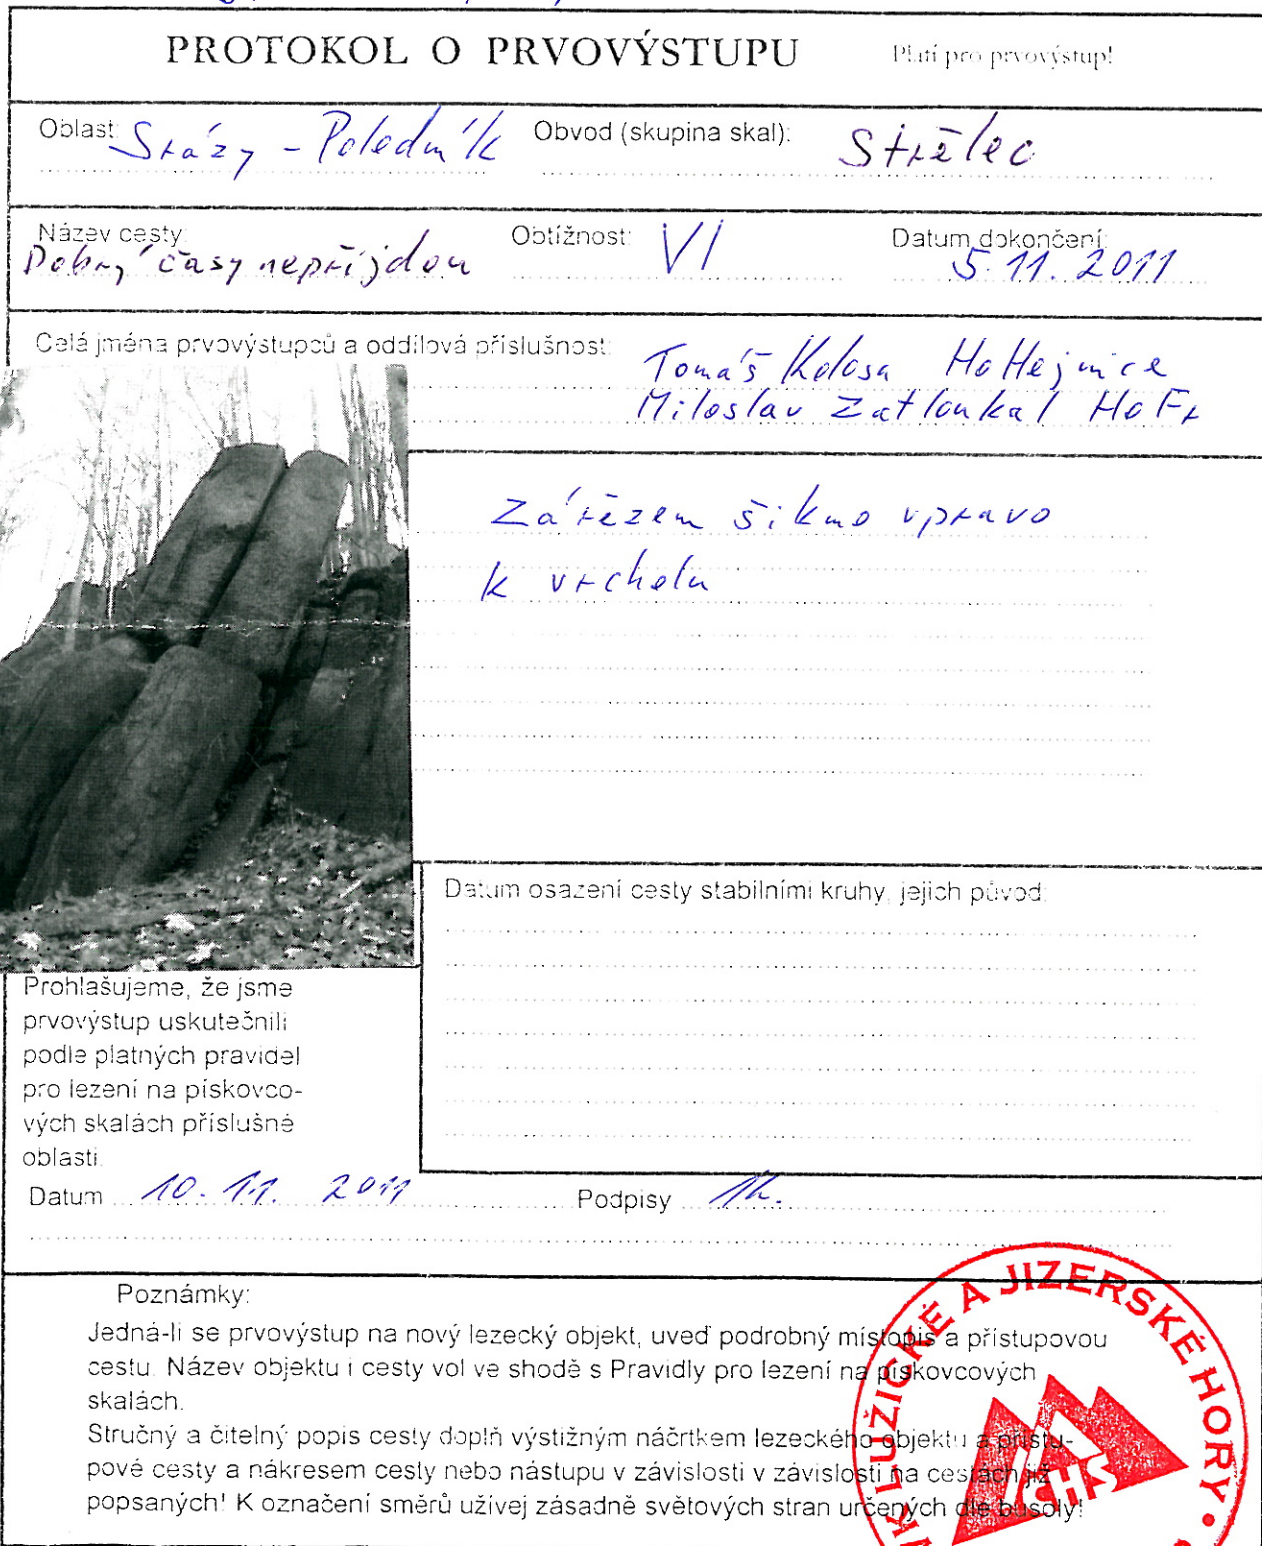 PROTOKOL O PRVOVÝSTUPU Platí pro prvovýstup!
Oblast: Srázy - Poledník Obvod (skupina skal): Střelec
Název cesty: Obtížnost: VI Datum dokončení:
Dobrý časy nepříjdou 5. 11. 2011
Celá jména prvovýstupců a oddílová příslušnost:
Tomáš Kolosa HoHejnice
Miloslav Zatloukal HoFr
Zářezem šikmo vpravo
k vrcholu
Datum osazení cesty stabilními kruhy, jejich původ:
Prohlašujeme, že jsme
prvovýstup uskutečnili
podle platných pravidel
pro lezení na pískovco-
vých skalách příslušné
oblasti.
Datum 10. 11. 2011 Podpisy
Poznámky:
Jedná-li se prvovýstup na nový lezecký objekt, uveď podrobný místopis a přístupovou
cestu. Název objektu i cesty vol ve shodě s Pravidly pro lezení na pískovcových
skalách.
Stručný a čitelný popis cesty doplň výstižným náčrtkem lezeckého objektu a přístu-
pové cesty a nákresem cesty nebo nástupu v závislosti v závislosti na cestách již
popsaných! K označení směrů užívej zásadně světových stran určených dle busoly!
LUŽICKÉ A JIZERSKÉ HORY •
ČHS